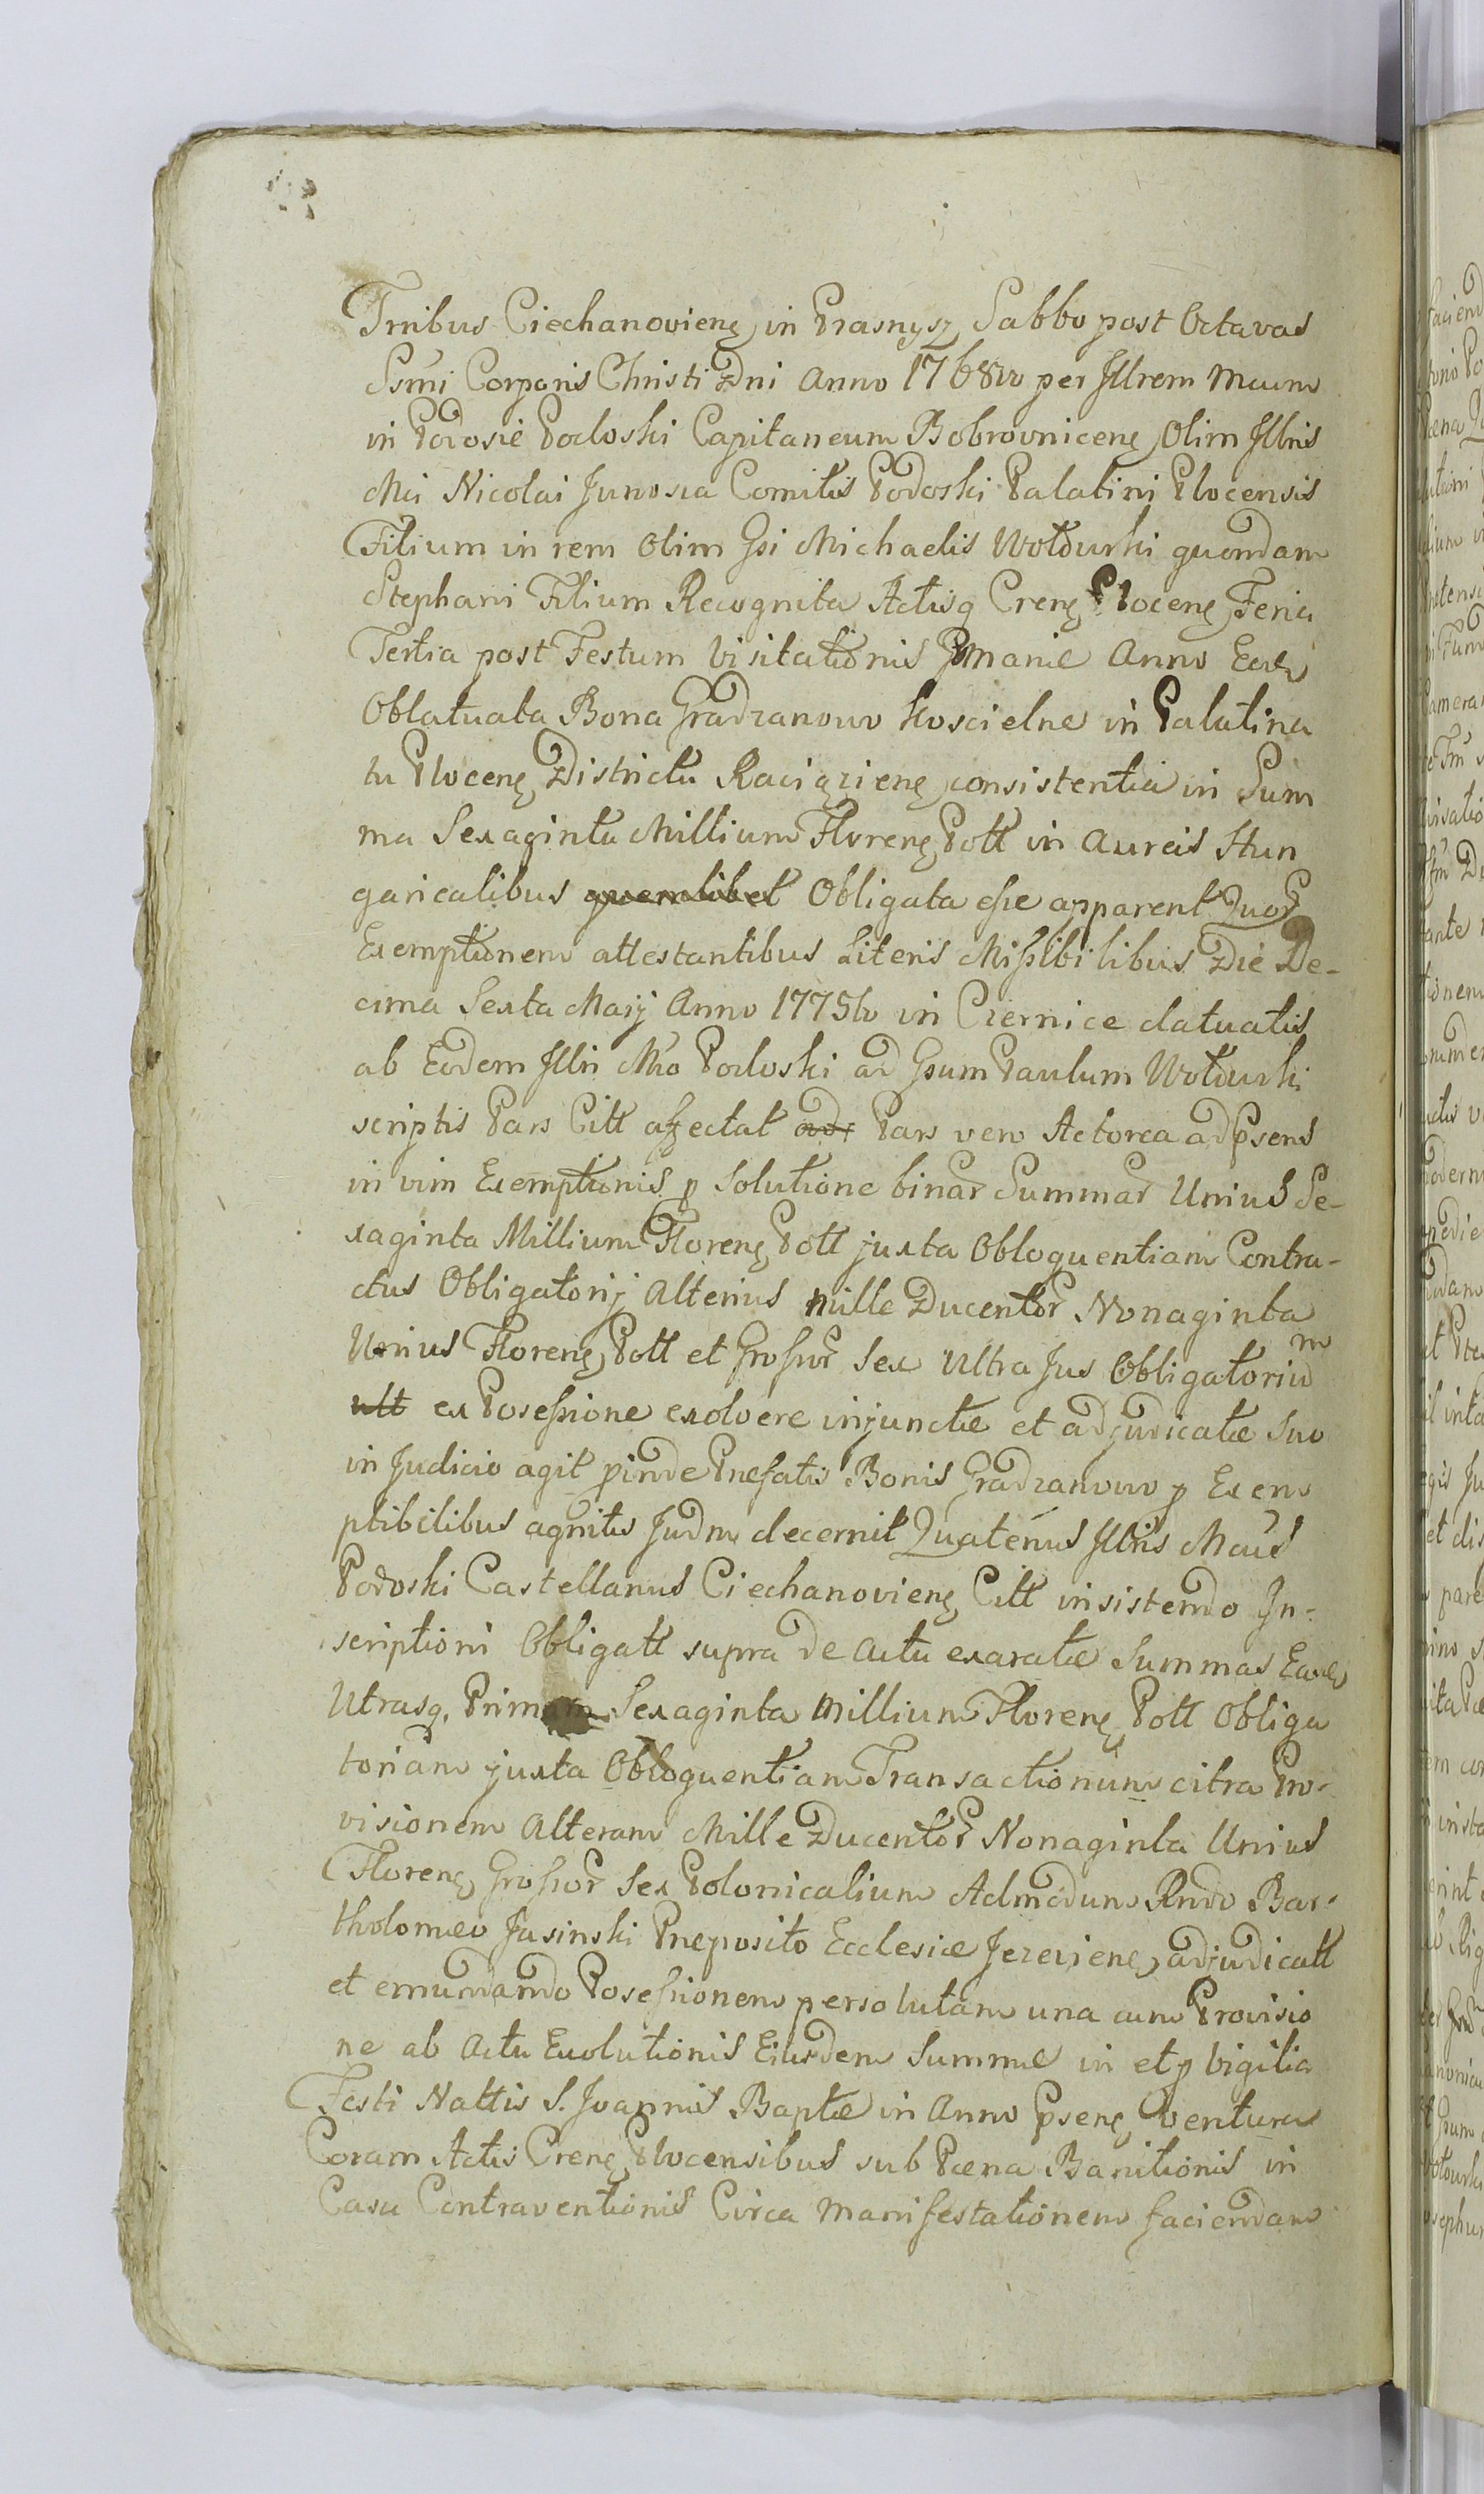 Trribus Ciechanoviens, in Prasnysz Sabbo post Octavas
Ssmi Corporis Christi Dni Anno 1768vo per Illrem Mcum
in Podosie Podoski Capitaneum Bobrovnicens, Olim Illris
Mci Nicolai Junosza Comitis Podoski Palatini Plocensis
Filium in rem Olim Gsi Michaelis Wołdurski quondam
Stephani Filium Recognita Actisq Crens Plocens, Feria
Tertia post Festum Visitationis Mariæ Anno Eod
Oblatuata Bona Gradzanowo Koscielne in Palatina
tu Plocens, Districtu Raciąziens, consistentia in Sum
ma Sexaginta Millium Florens, Poll in Aureis Hun
garicalibus quemlibet Obligata esse apparent Quor
Exemptionem attestantibus Literis Missibilibus Die De-
cima Sexta Maij Anno 1775to in Czernice datuatis
ab Eodem Illri Mco Podoski ad Gsum Paulum Wołdurski
scriptis Pars Citt affectat ad Pars vero Actorea ad Psens
in vim Exemptionis p Solutione binar Summar Unius Se-
xaginta Millium Florens, Poll juxta Obloquentiam Contra-
ctus Obligatorij Alterius mille Ducentor Nonaginta
Unius Florens, Poll et Grossor Sex Ultra Jus Obligatoriu
m
ult ex Possessione exolvere injunctæ et adjudicatæ Suo
in Judicio agit proinde Præfatis Bonis Gradzanowo p Exem
ptibilibus agnitis Judm decernit Quatenus Illris Mcus
Podoski Castellanus Ciechanoviens, Citt insistendo In-
scriptioni Obligatt supra de Actu exaratæ Summas Easd
Utrasq, Primam Sexaginta Millium Florens, Poll Obliga
toriam juxta Obloquentiam Transactionum citra Pro-
visionem Alteram Mille Ducentor Nonaginta Unius
Florens, Grossor Sex Polonicalium Admodum Rndo Bar-
tholomeo Jasinski Præposito Ecclesiæ Jezeviens, adjudicatt
et emundando Possessionem persolutam una cum Provisio
ne ab Actu Exolutionis Eiusdem Summæ in et p Vigilia
Festi Nattis S. Joannis Baptæ in Anno Psens, Ventura
Coram Actis Crens, Plocensibus sub Pæna Banitionis in
Casu Contraventionis Circa Manifestationem faciendam